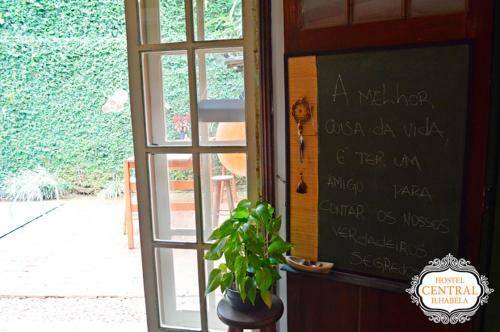 A MELHOR
COISA DA VIDA,
É TER UM
AMIGO PARA
CONTAR OS NOSSOS
VERDADEIROS
SEGREDOS
HOSTEL
CENTRAL
ILHABELA